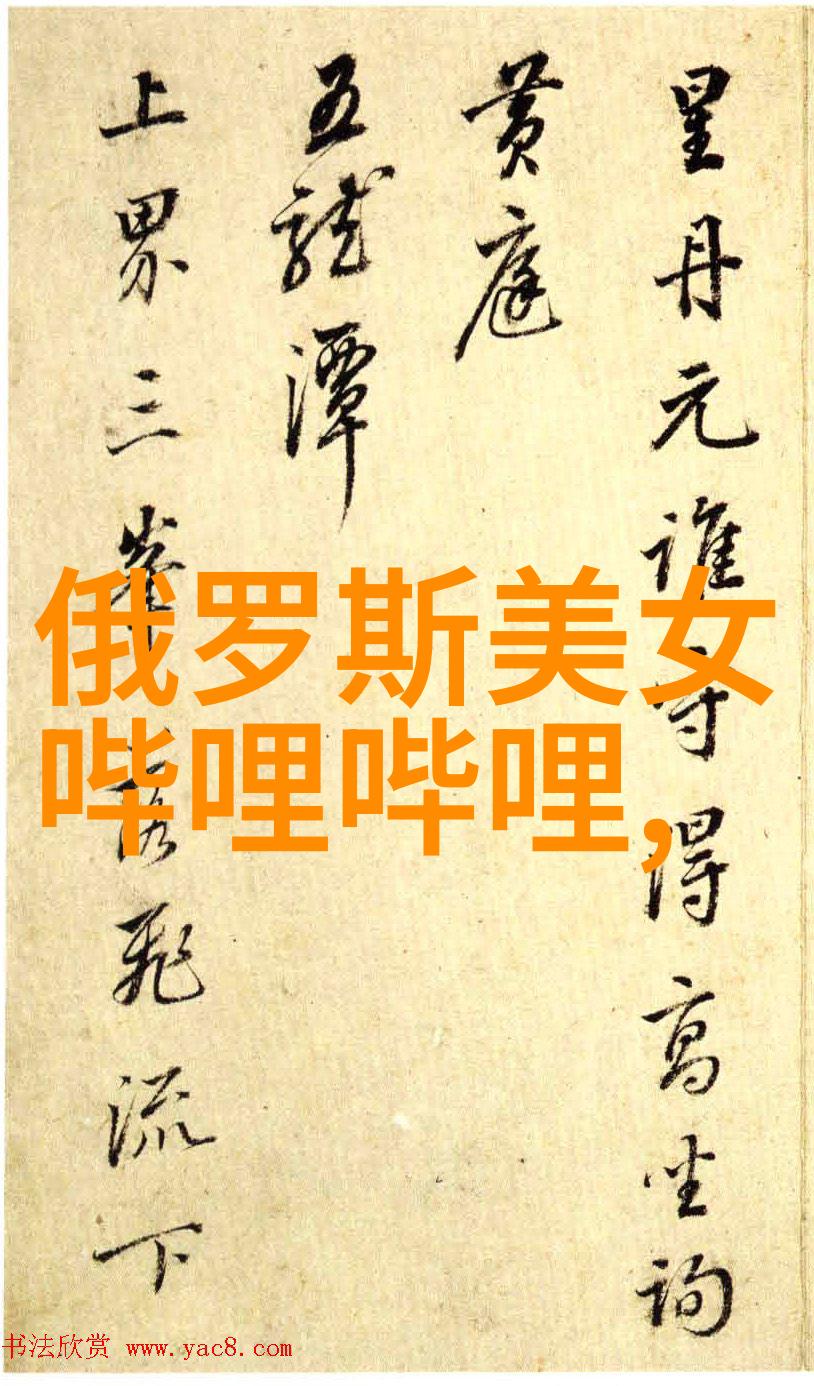 星丹元誰守得高坐詢
黄庭
五龍潭
上界三峯 飛流下
俄罗斯美女
哔哩哔哩,
书法欣赏 www.yac8.com